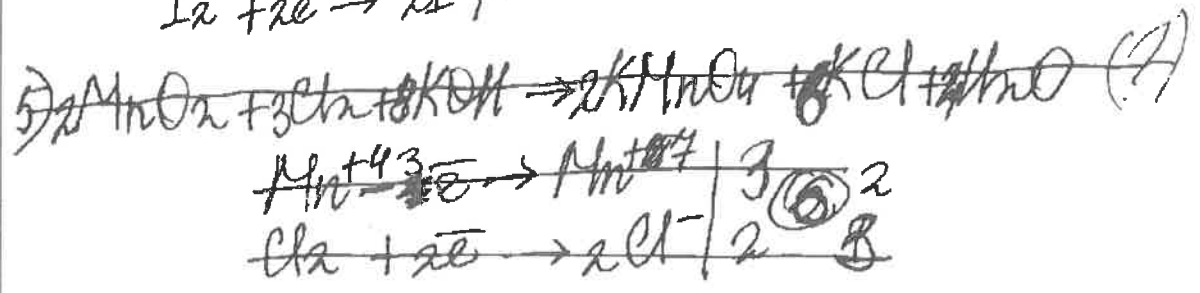 I2 + 2e → 2I
5) 2MnO2 + 3Cl2 + 8KOH → 2KMnO4 + 6KCl + 4H2O (?)
Mn+4 - 3e → Mn+7 | 3 6 2
Cl2 + 2e → 2Cl- | 2 3